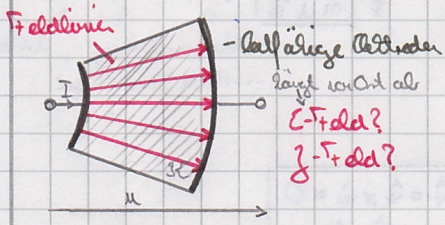 Feldlinien
I
- leitfähige Elektroden
hängt von Ort ab
E-Feld?
J-Feld?
ϰ
u